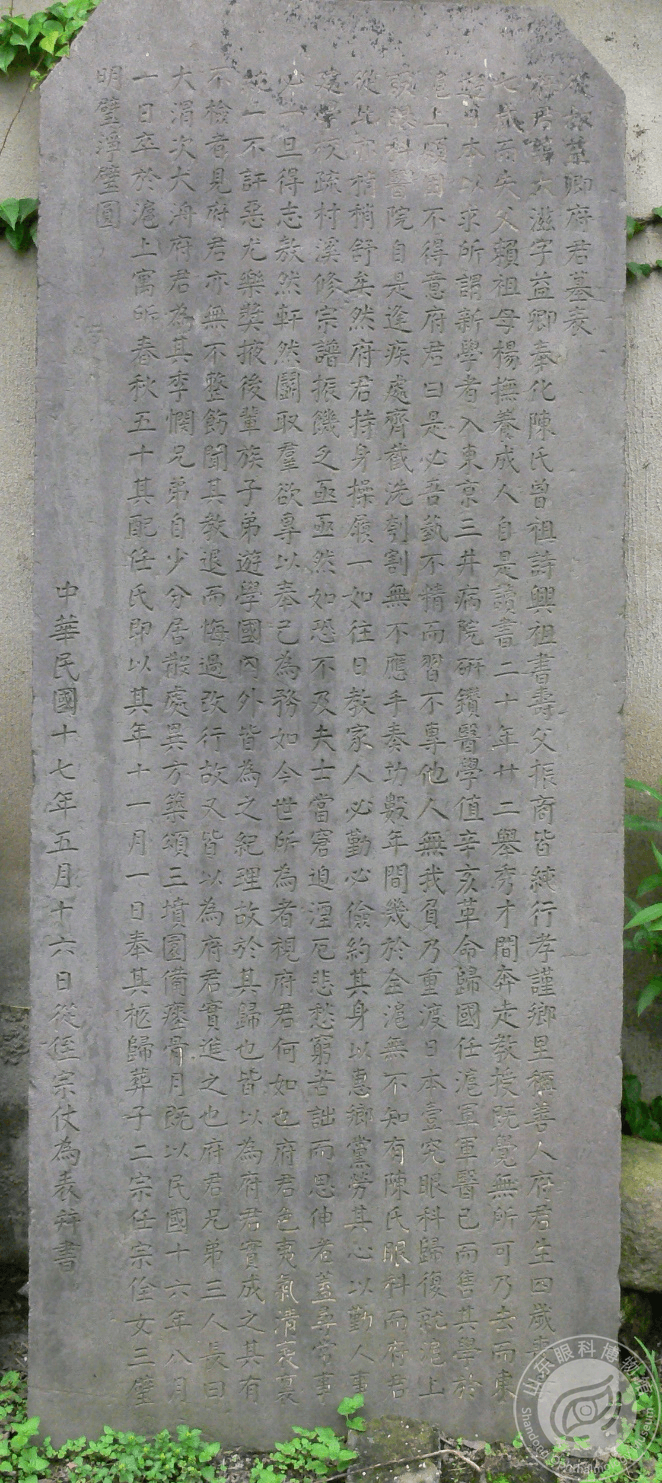 從叔益卿府君墓表
府君諱大滋字益卿奉化陳氏曾祖詩興祖書壽父振商皆純行孝謹鄉里稱善人府君生四歲喪
七歲而失父賴祖母楊撫養成人自是讀書二十年廿二舉秀才間奔走教授既覺無所可乃去而東
日本以求所謂新學者入東京三井病院研鑽醫學值辛亥革命歸國任滬軍軍醫已而售其學於
滬上頗因不得意府君曰是必吾藝不精而習不專他人無我負乃重渡日本壹究眼科歸復就滬上
設眼科醫院自是逢疾處齊截洗刳割無不應手奏功數年間幾於全滬無不知有陳氏眼科而府君
從此亦稍稍舒矣然府君持身操履一如往日教家人必勤必儉約其身以惠鄉黨勞其心以勤人事
學校疏村溪修宗譜振饑乏亟亟然如恐不及夫士當窘迫湮厄悲愁窮苦詘而思伸者蓋尋常事
一旦得志教然軒然闢取羣欲專以奉己為務如今世所為者視府君何如也府君色夷氣清表裏
不訐惡尤樂獎掖後輩族子弟遊學國內外皆為之紀理故於其歸也皆以為府君實成之其有
不檢者見府君亦無不整飭聞其教退而悔過改行故又皆以為府君實進之也府君兄弟三人長曰
大渭次大舟府君為其季憫兄弟自少分居散處異方築頌三墳園備瘞骨月既以民國十六年八月
一日卒於滬上寓所春秋五十其配任氏即以其年十一月一日奉其柩歸葬子二宗任宗佺女三璧
明璧淨璧圓
中華民國十七年五月十六日從侄宗仗為表并書
山东眼科博物馆